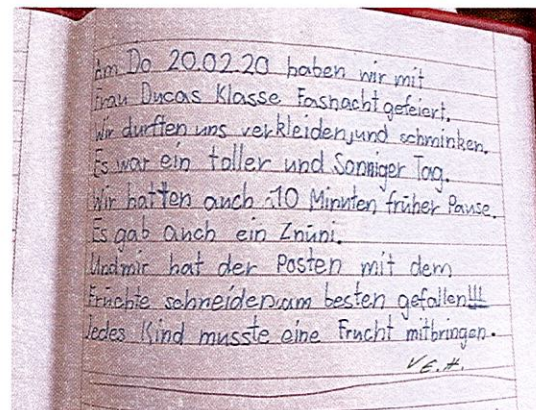 Am Do 20.02.20 haben wir mit
Frau Ducas Klasse Fasnacht gefeiert.
Wir durften uns verkleiden, und schminken.
Es war ein toller und Sonniger Tag.
Wir hatten auch 10 Minuten früher Pause.
Es gab auch ein Znüni.
Und mir hat der Posten mit dem
Früchte schneiden am besten gefallen!!!
Jedes Kind musste eine Frucht mitbringen.